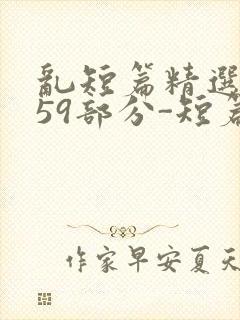 乱短篇精選
59部分-短篇
作家早安夏天